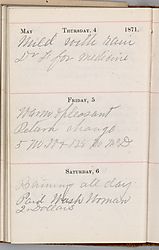 MAY THURSDAY, 4 1871.
Mild with rain
Dr F. for medicine
FRIDAY, 5
Warm & pleasant
change
5
SATURDAY, 6
Raining all day
Paid Wash Woman
2 Dollars